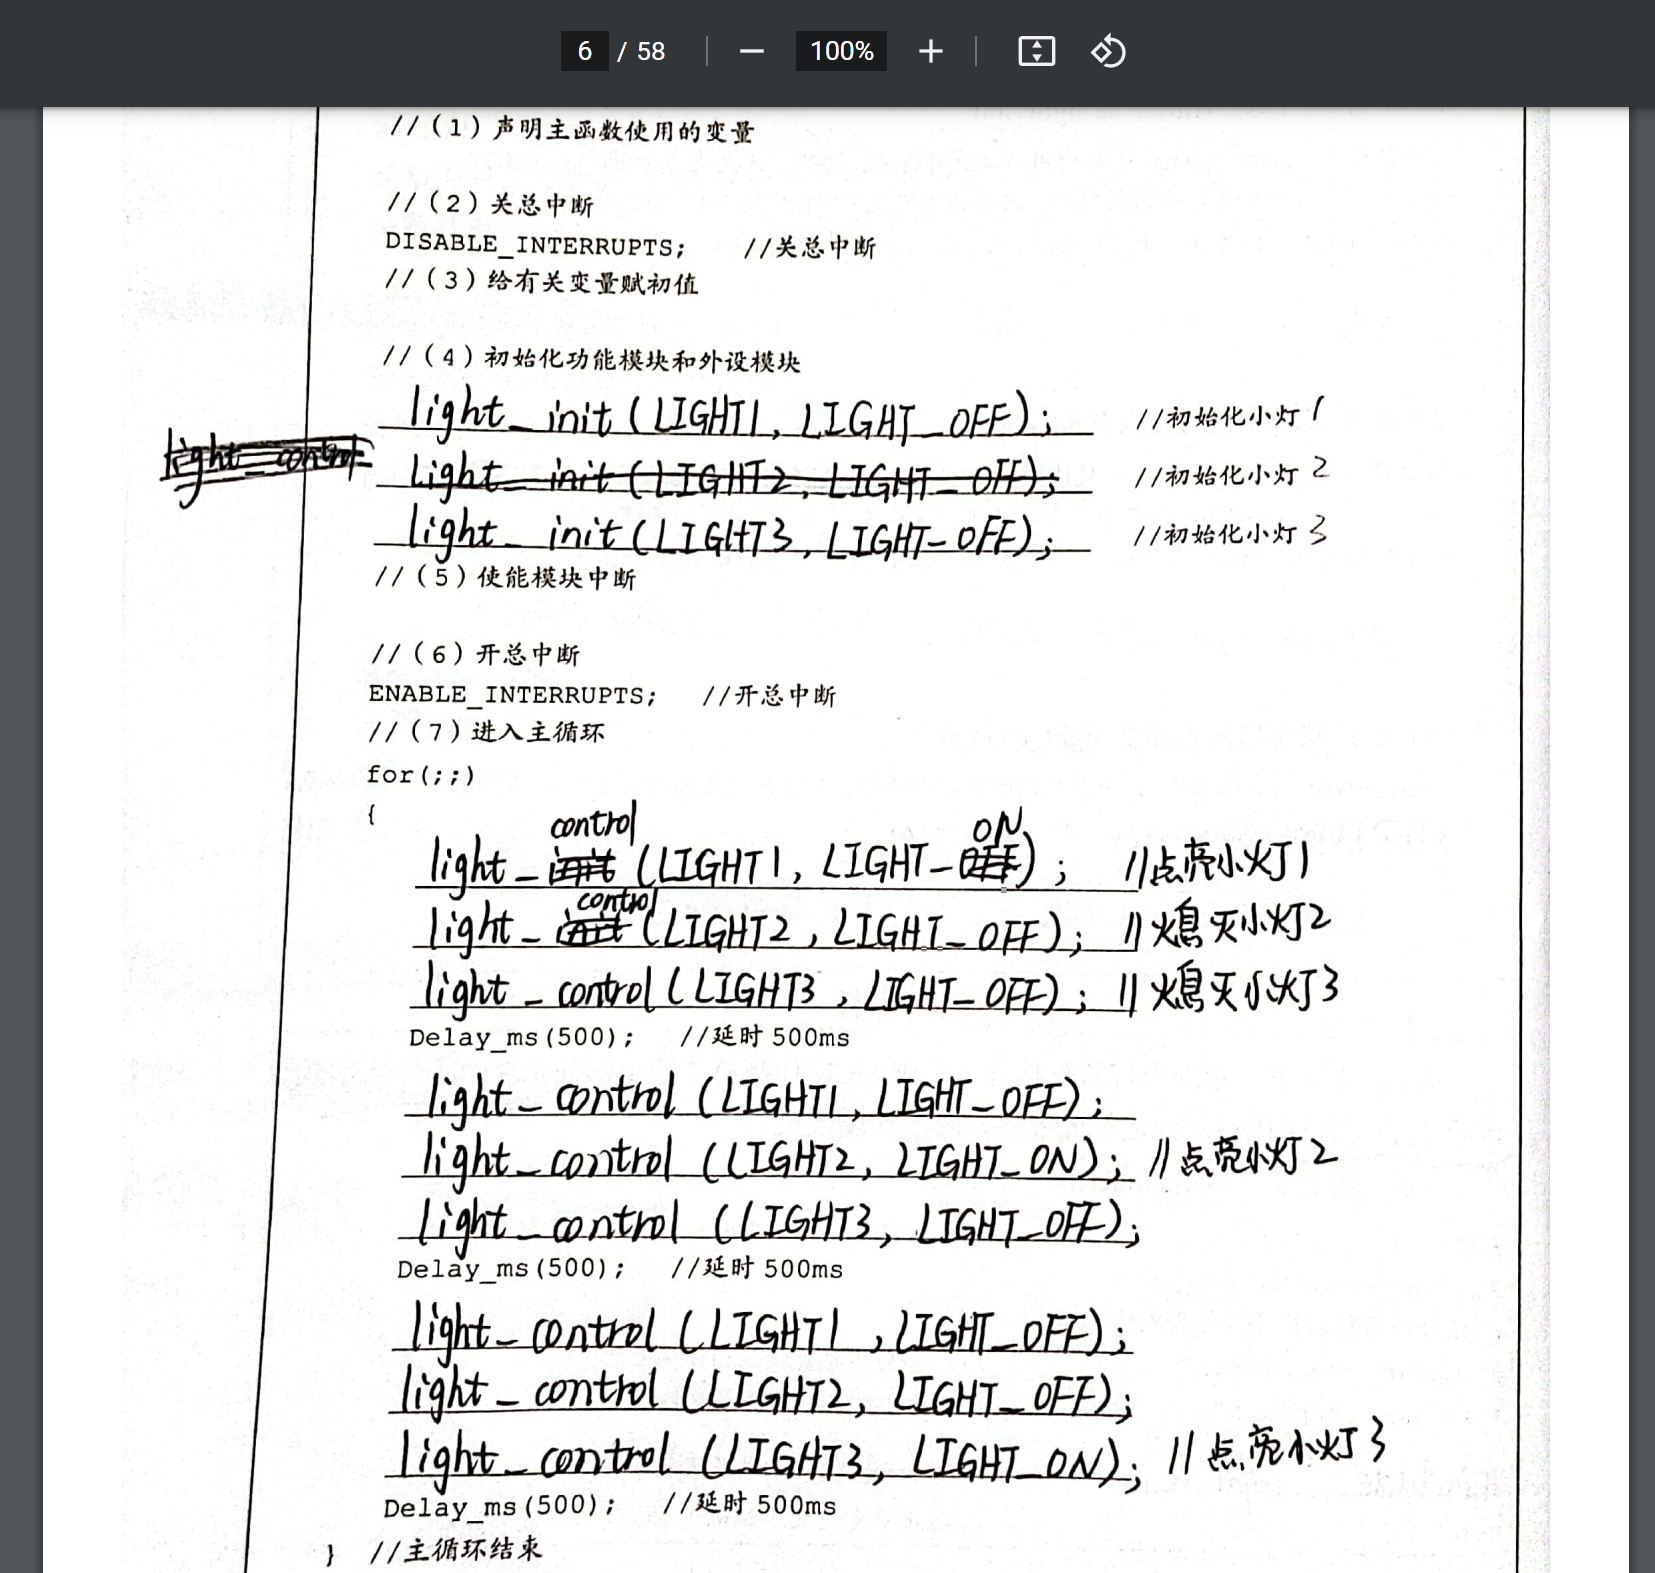 6 / 58 — 100% +
//(1)声明主函数使用的变量
//(2)关总中断
DISABLE_INTERRUPTS; //关总中断
//(3)给有关变量赋初值
//(4)初始化功能模块和外设模块
light_init(LIGHT1, LIGHT_OFF); //初始化小灯1
light_control
light_init(LIGHT2, LIGHT_OFF); //初始化小灯2
light_init(LIGHT3, LIGHT_OFF); //初始化小灯3
//(5)使能模块中断
//(6)开总中断
ENABLE_INTERRUPTS; //开总中断
//(7)进入主循环
for(;;)
{
control ON
light_init(LIGHT1, LIGHT_OFF); //点亮小灯1
control
light_init(LIGHT2, LIGHT_OFF); //熄灭小灯2
light_control(LIGHT3, LIGHT_OFF); //熄灭小灯3
Delay_ms(500); //延时500ms
light_control(LIGHT1, LIGHT_OFF);
light_control(LIGHT2, LIGHT_ON); //点亮小灯2
light_control(LIGHT3, LIGHT_OFF);
Delay_ms(500); //延时500ms
light_control(LIGHT1, LIGHT_OFF);
light_control(LIGHT2, LIGHT_OFF);
light_control(LIGHT3, LIGHT_ON); //点亮小灯3
Delay_ms(500); //延时500ms
} //主循环结束